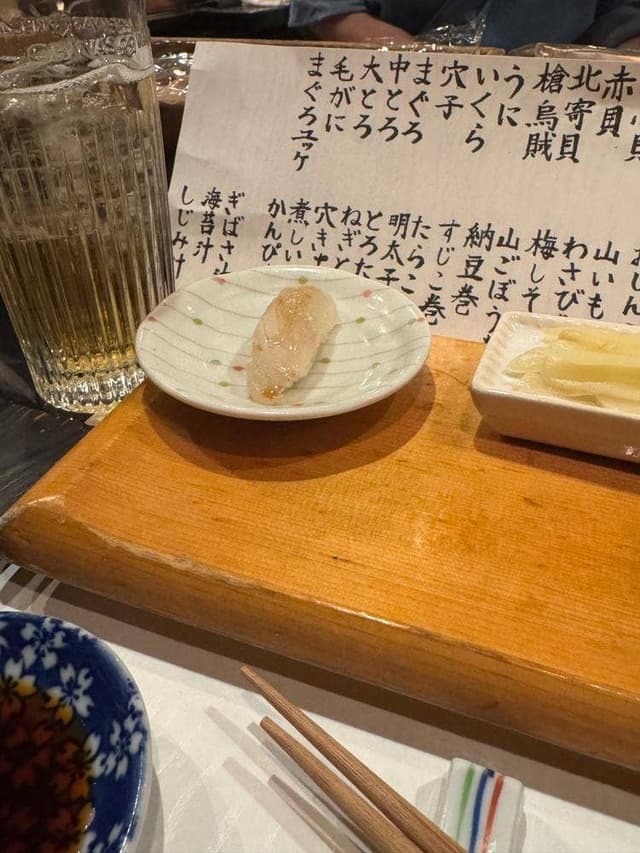 赤貝
北寄貝
槍烏賊
うに
いくら
穴子
まぐろ
中とろ
大とろ
毛がに
まぐろユッケ
山いも
わさび
梅しそ
山ごぼう
納豆巻
すじこ巻
たらこ
明太子
とろた
ねぎと
穴き
煮しい
かんぴ
ぎばさ汁
海苔汁
しじみ汁